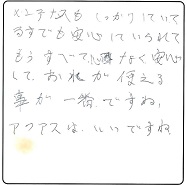 メンテナスも しっかりしていて
るすでも安心していられて
もうすべて心配なく安心
して、おれが使える
事が一番ですね、
アクアスは、いいですね